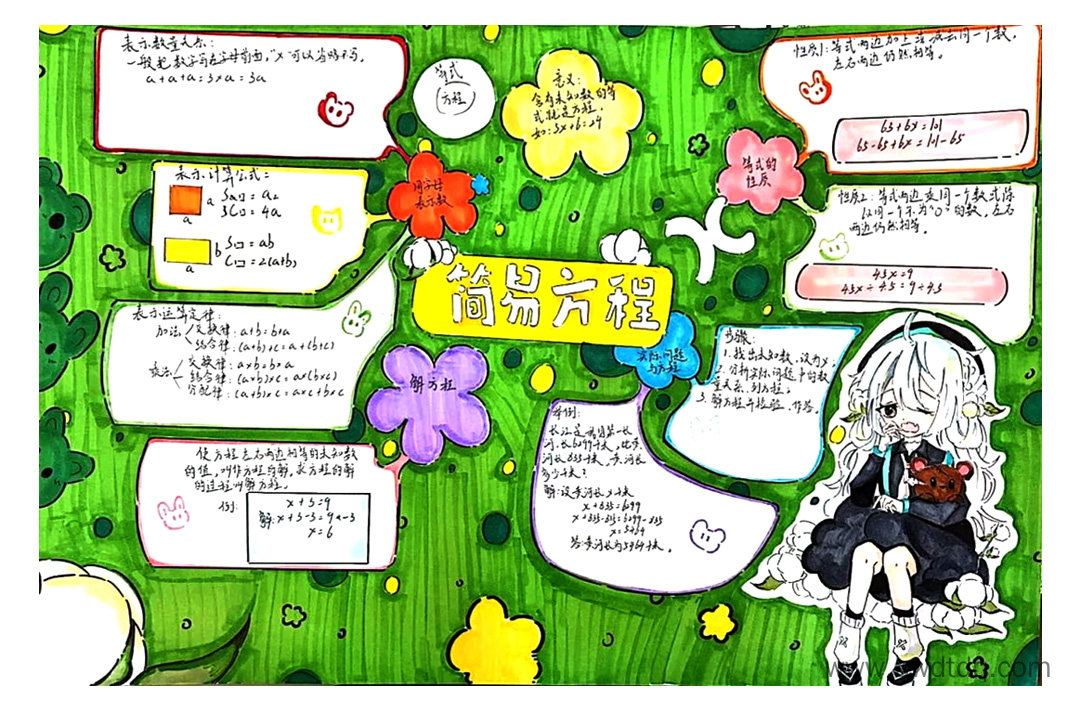 简易方程
用字母
表示数
表示数量关系:
一般把数字写在字母前面,"×"可以省略不写。
a+a+a=3×a=3a
表示计算公式:
a
a
S正口=a2
C口=4a
b
a
S口=ab
C口=2(a+b)
表示运算定律:
加法
交换律:a+b=b+a
结合律:(a+b)+c=a+(b+c)
乘法
交换律:a×b=b×a
结合律:(a×b)×c=a×(b×c)
分配律:(a+b)×c=a×c+b×c
解方程
使方程左右两边相等的未知数
的值,叫作方程的解,求方程的解
的过程叫解方程。
例:
x+3=9
解:x+3-3=9-3
x=6
等式
(方程)
意义:
含有未知数的等
式就是方程。
如:3x+6=24
等式的
性质
性质1:等式两边加上或减去同一个数,
左右两边仍然相等。
65+6x=101
65-65+6x=101-65
性质2:等式两边乘同一个数或除
以同一个不为"0"的数,左右
两边仍然相等。
45x=9
45x÷45=9÷45
实际问题
与方程
步骤:
1.找出未知数,设为x;
2.分析实际问题中的数
量关系,列方程;
3.解方程并检验,作答。
举例:
长江是我国第一长
河,长6299千米,比黄
河长835千米,黄河长
多少千米?
解:设黄河长x千米
x+835=6299
x+835-835=6299-835
x=5464
答:黄河长为5464千米。